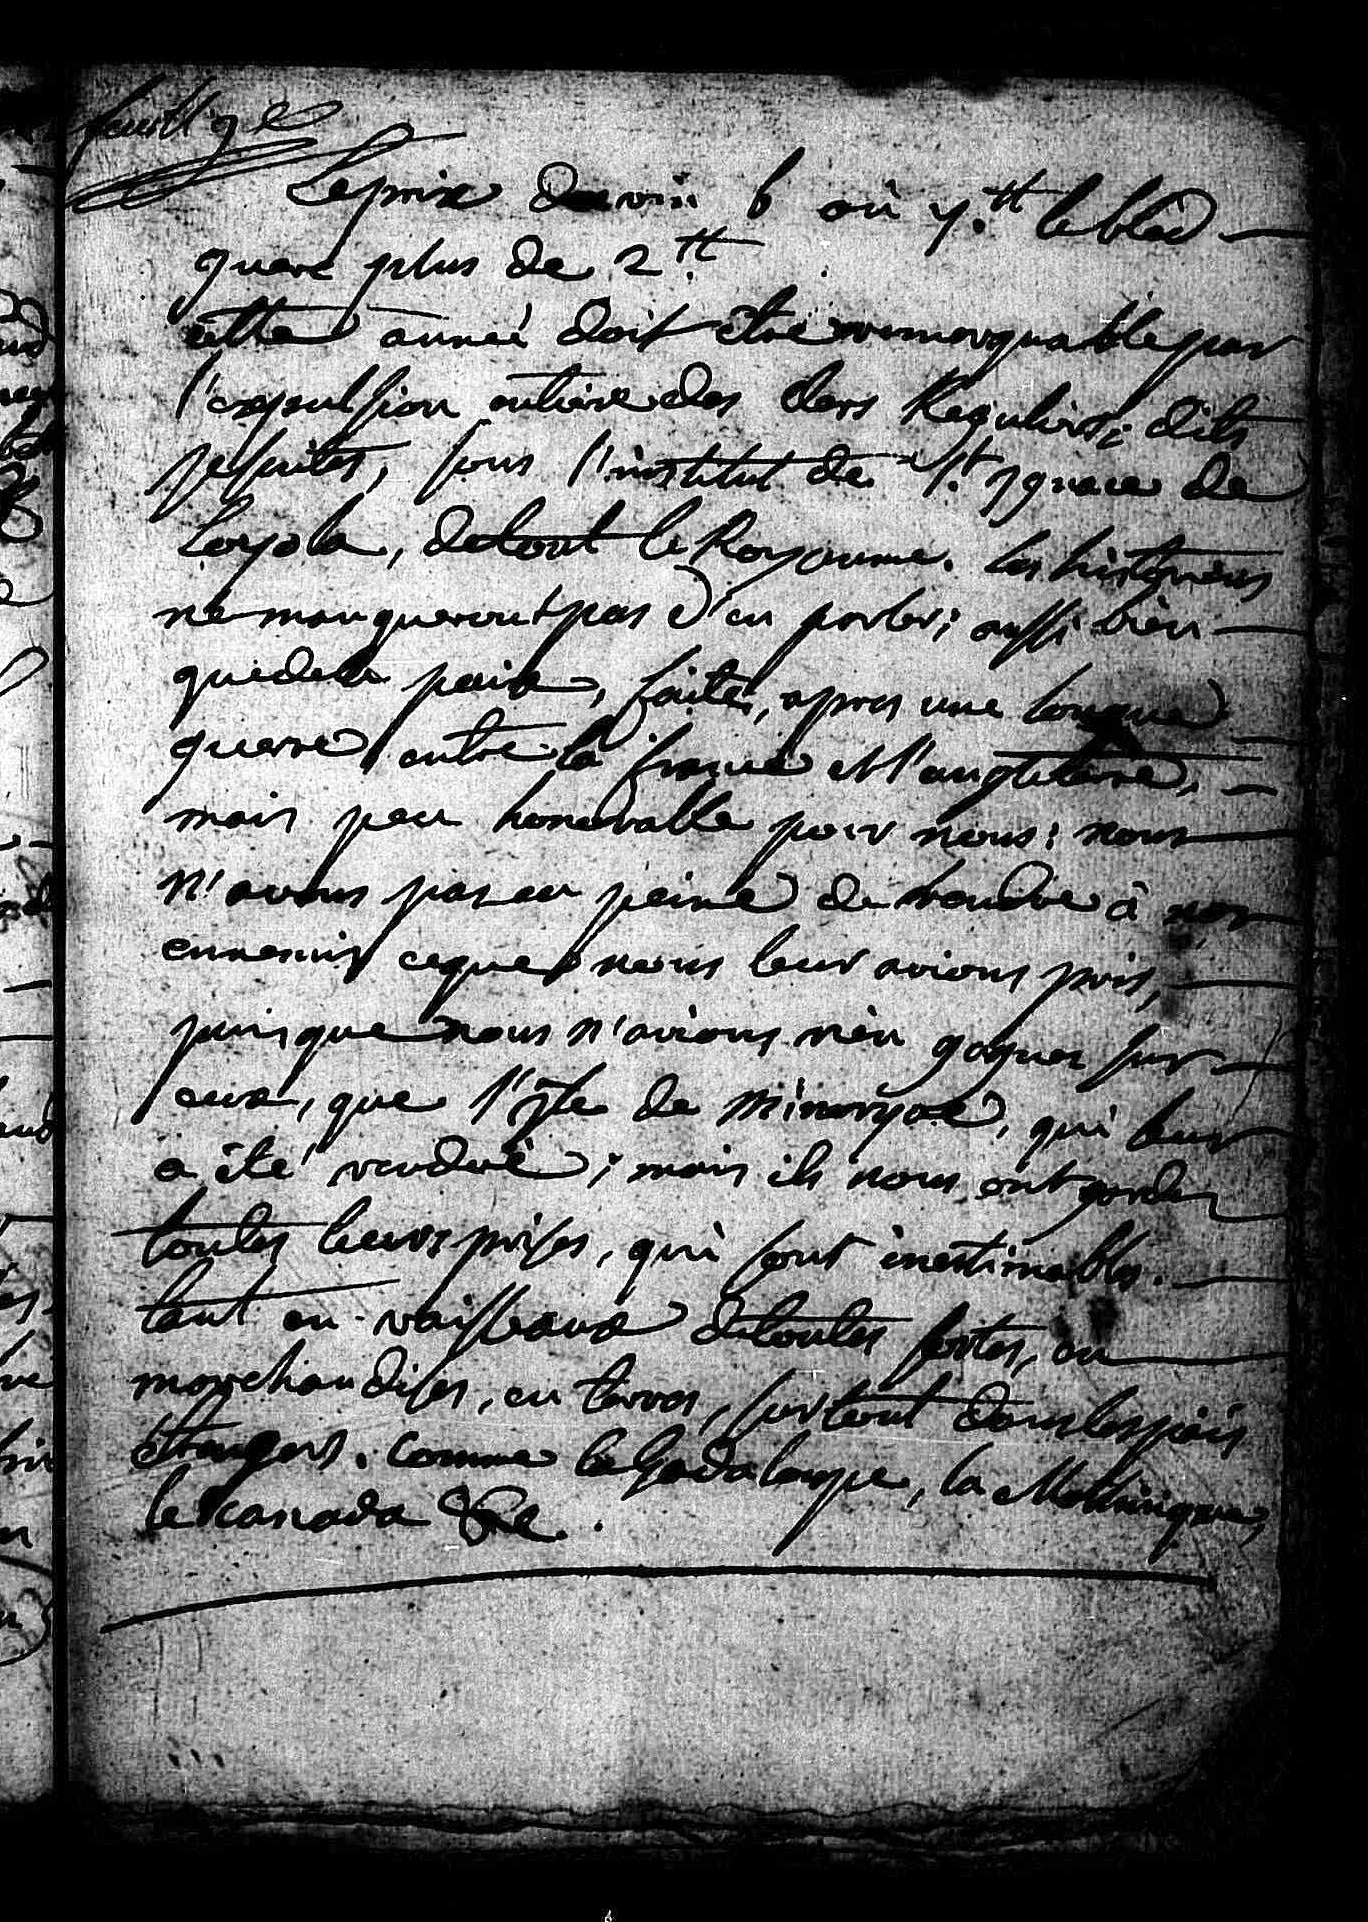 Le prix du vin 6 où 7.tt le bled
guere plus de 2tt
cette année doit etre remarquable par
l'expulsion entiere des clers Reguliers, dits
jesuites, sous l'institut de St. ignace de
Loyola, de tout le Royaume. les historiens
ne manqueront pas d'en parler; aussi bien
que de la paix, faite, apres une longue
guerre entre la france et l'angleterre,
mais peu honorable pour nous: nous
n'avons pas eu peine de rendre à nos
ennemis ce que nous leur avions pris,
puisque nous n'avions rien gagner sur
eux, que l'isle de Minorque, qui leur
a été rendue; mais ils nous ont garder
toutes leurs prises, qui sont inestimables.
tant en vaisseaux de toutes sortes, en
marchandises, en terres, surtout dans les païs
étrangers. comme la Gadaloupe, la Martinique,
le Canada &c.